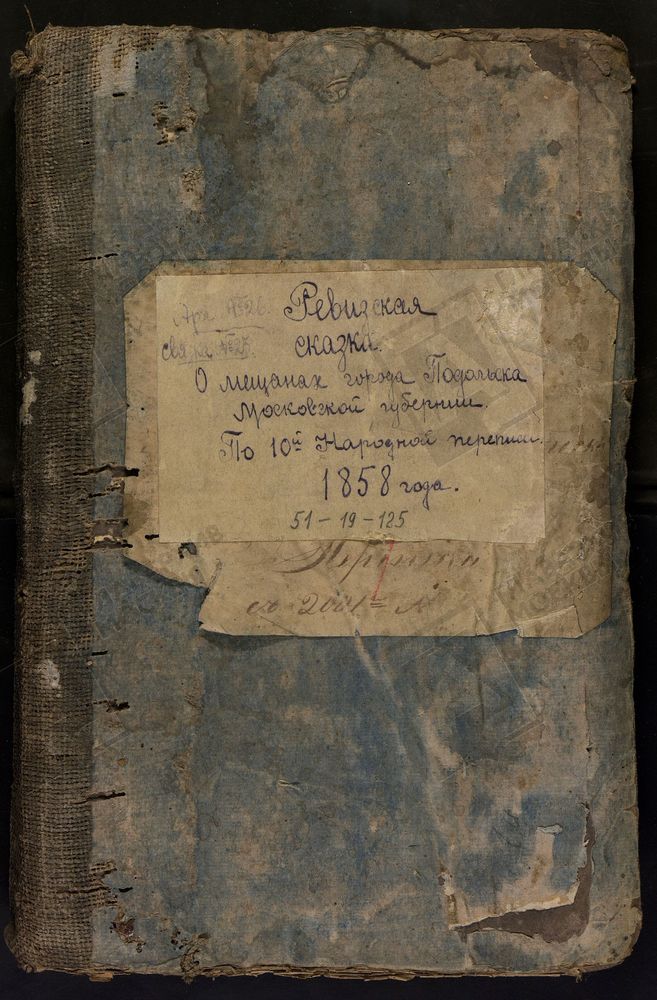 Арх №26.
связка №27.
Ревизская
сказка.
О мещанах города Подольска
Московской губернии.
По 10й Народной переписи.
1858 года.
51-19-125